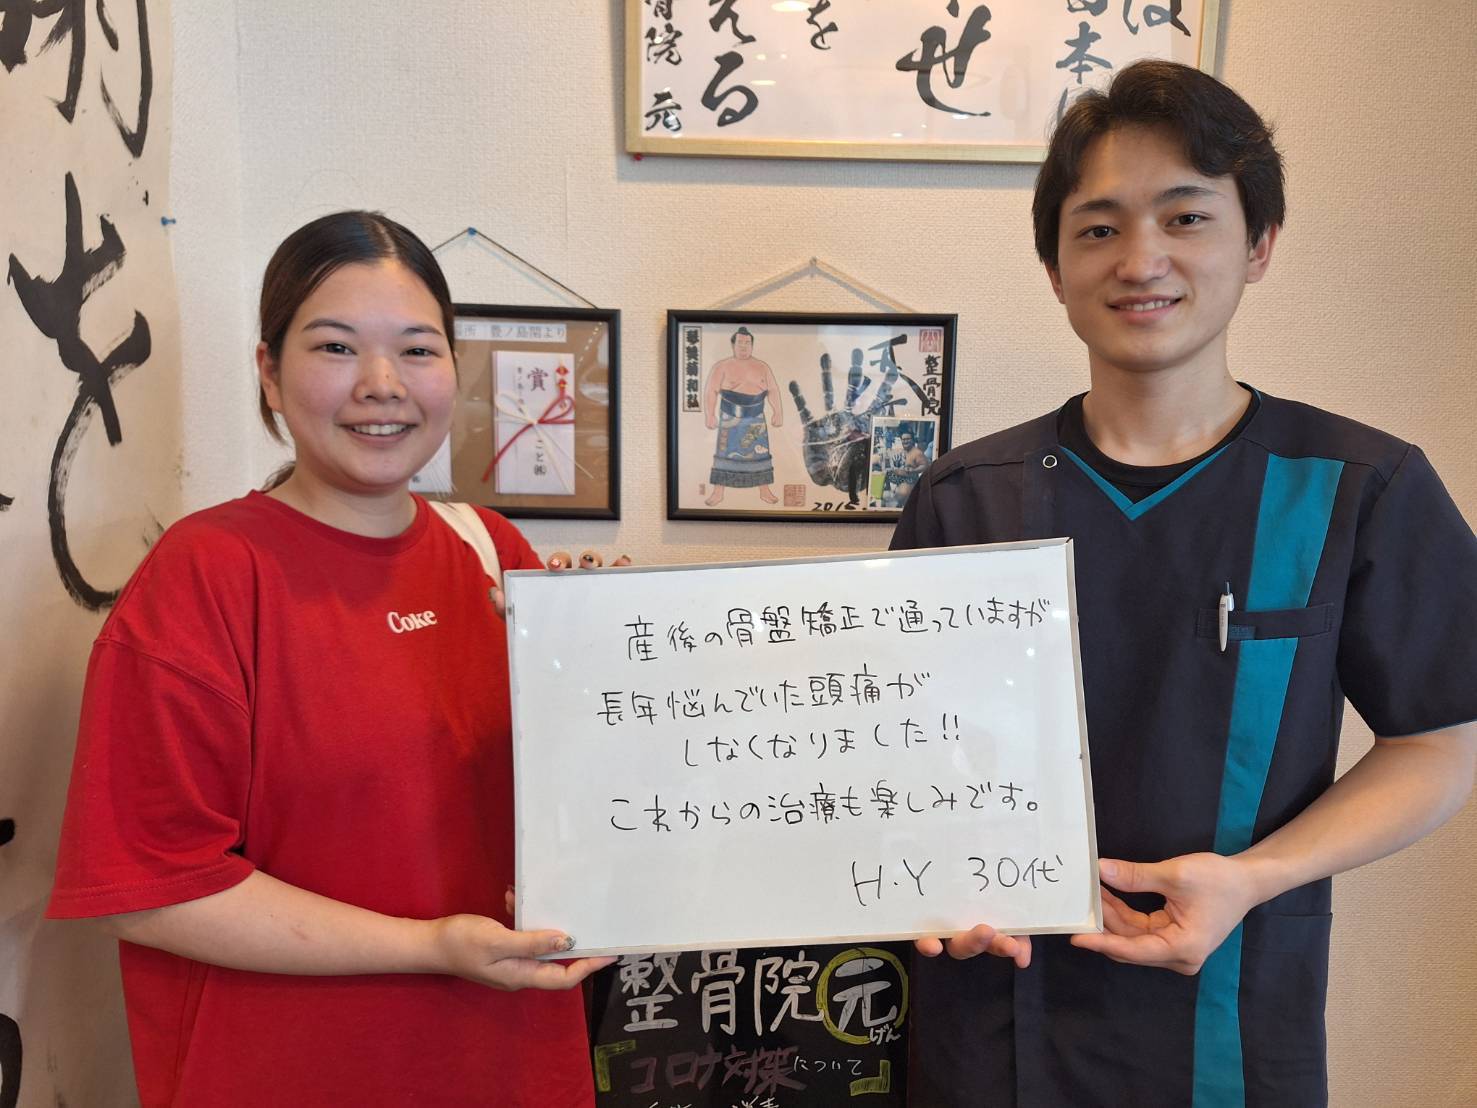 は
日本に
せ
を
える
骨院 元
謝を
場所 豊ノ島関より
賞
琴奨菊和弘
整骨院
2015.
Coke
産後の骨盤矯正で通っていますが
長年悩んでいた頭痛が
しなくなりました!!
これからの治療も楽しみです。
H.Y 30代
整骨院元
げん
「コロナ対策について」